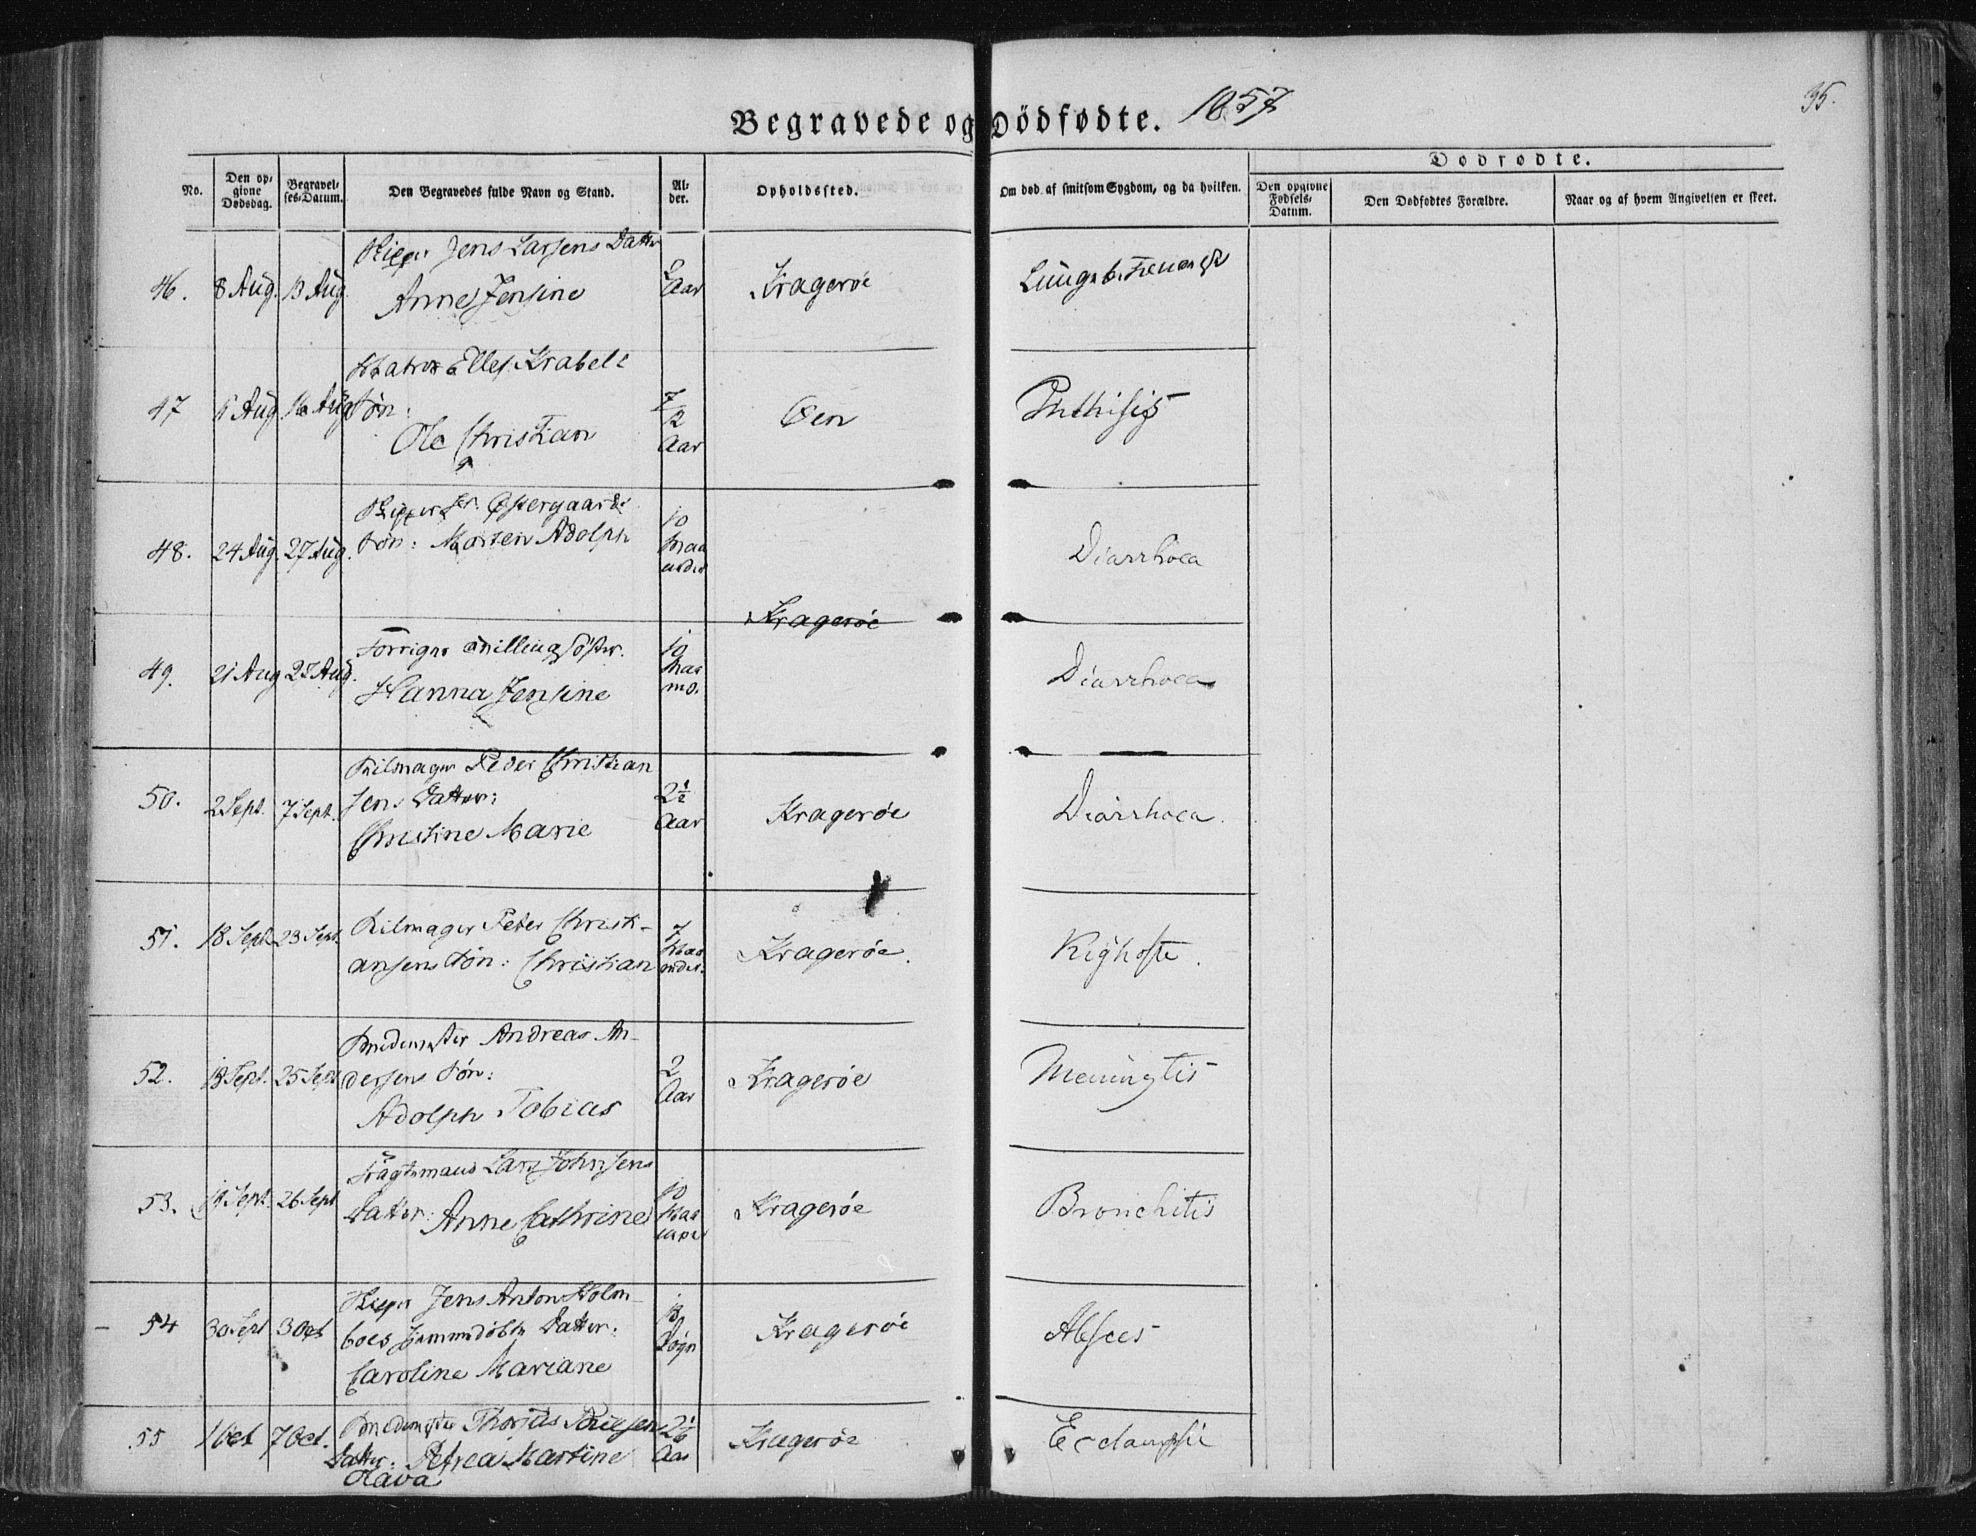 Begravede og Dödfødte. 1857
35.
No. Den opgivne Dødsdag. Begravelses-Datum. Den Begravedes fulde Navn og Stand. Alder. Opholdssted. Om død af smitsom Sygdom, og da hvilken. Dødfødte. Den opgivne Fødsels-Datum. Den Dødfødtes Forældre. Naar og af hvem Angivelsen er skeet.
46. 8 Aug. 13 Aug. Jens Larsens Datter
Anne Jensine Aar Kragerøe
47 Aug 16 Aug Ellef Krabels
Søn:
Ole Christian 7/12 Aar Øen Phthisis
48. 24 Aug. 27 Aug. Østergaards
Søn: Morten Adolph 10 Maaneder Diarrhoea
Kragerøe
49. 21 Aug 27 Aug. Forriges Tvillingsøster.
Hanna Jensine 10 Maa Diarrhoea
50. 2 Sept. 7 Sept. Peder Christian
Jens Datter:
Christine Marie 2½ Aar Kragerøe Diarrhoea.
51. 18 Sept. 23 Sept. Peter Christi-
ansens Søn: Christian 7 Maaneder. Kragerøe. Kighoste.
52. 18 Sept. 25 Sept Andreas An-
dersens Søn:
Adolph Tobias 2 Aar Kragerøe Meningitis
53. 19 Sept. 26 Sept Lars Johnsens
Datter: Anne Cathrine 10 Maaneder Kragerøe Bronchitis
54 30 Sept 3 Oct Jens Anton Holm-
boes hjemmedøbte Datter:
Caroline Mariane 18 Døgn Kragerøe Absces
55 1 Oct 7 Oct. Thomas
Datter: Petrea Martine 2½ Aar Kragerøe Eclampsie
Olava